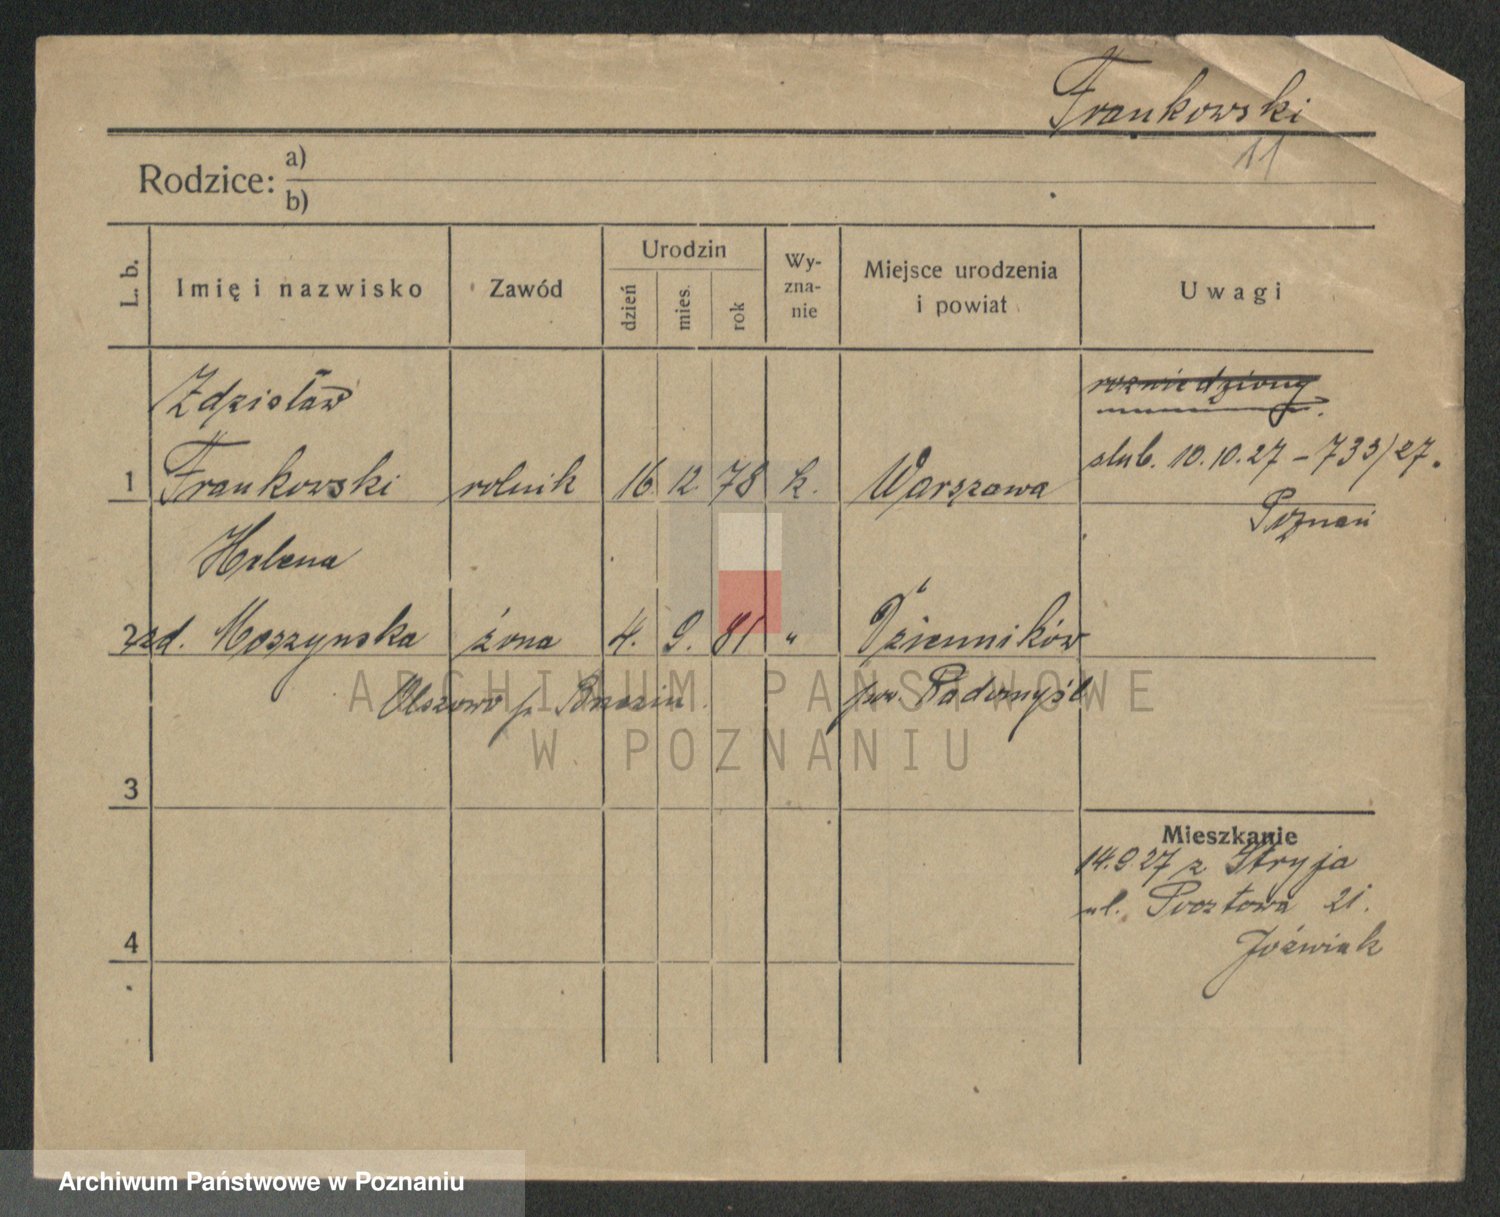 Frankowski
11
Rodzice: a)
b)
L. b.
Imię i nazwisko
Zawód
Urodzin
dzień
mies.
rok
Wy-
zna-
nie
Miejsce urodzenia
i powiat
Uwagi
Zdzisław
rozwiedziony
1 Frankowski rolnik 16 12 78 k. Warszawa
ślub. 10.10.27 – 733/27.
Poznań
Helena
2 zd. Moszynska żona 4. 9. 81 " Dzienników
Olszowo p.
pow. Radomyśl
3
4
Mieszkanie
14.9.27 z Stryja
ul. Pocztowa 21.
Jóźwiak
ARCHIWUM PAŃSTWOWE
W POZNANIU
Archiwum Państwowe w Poznaniu